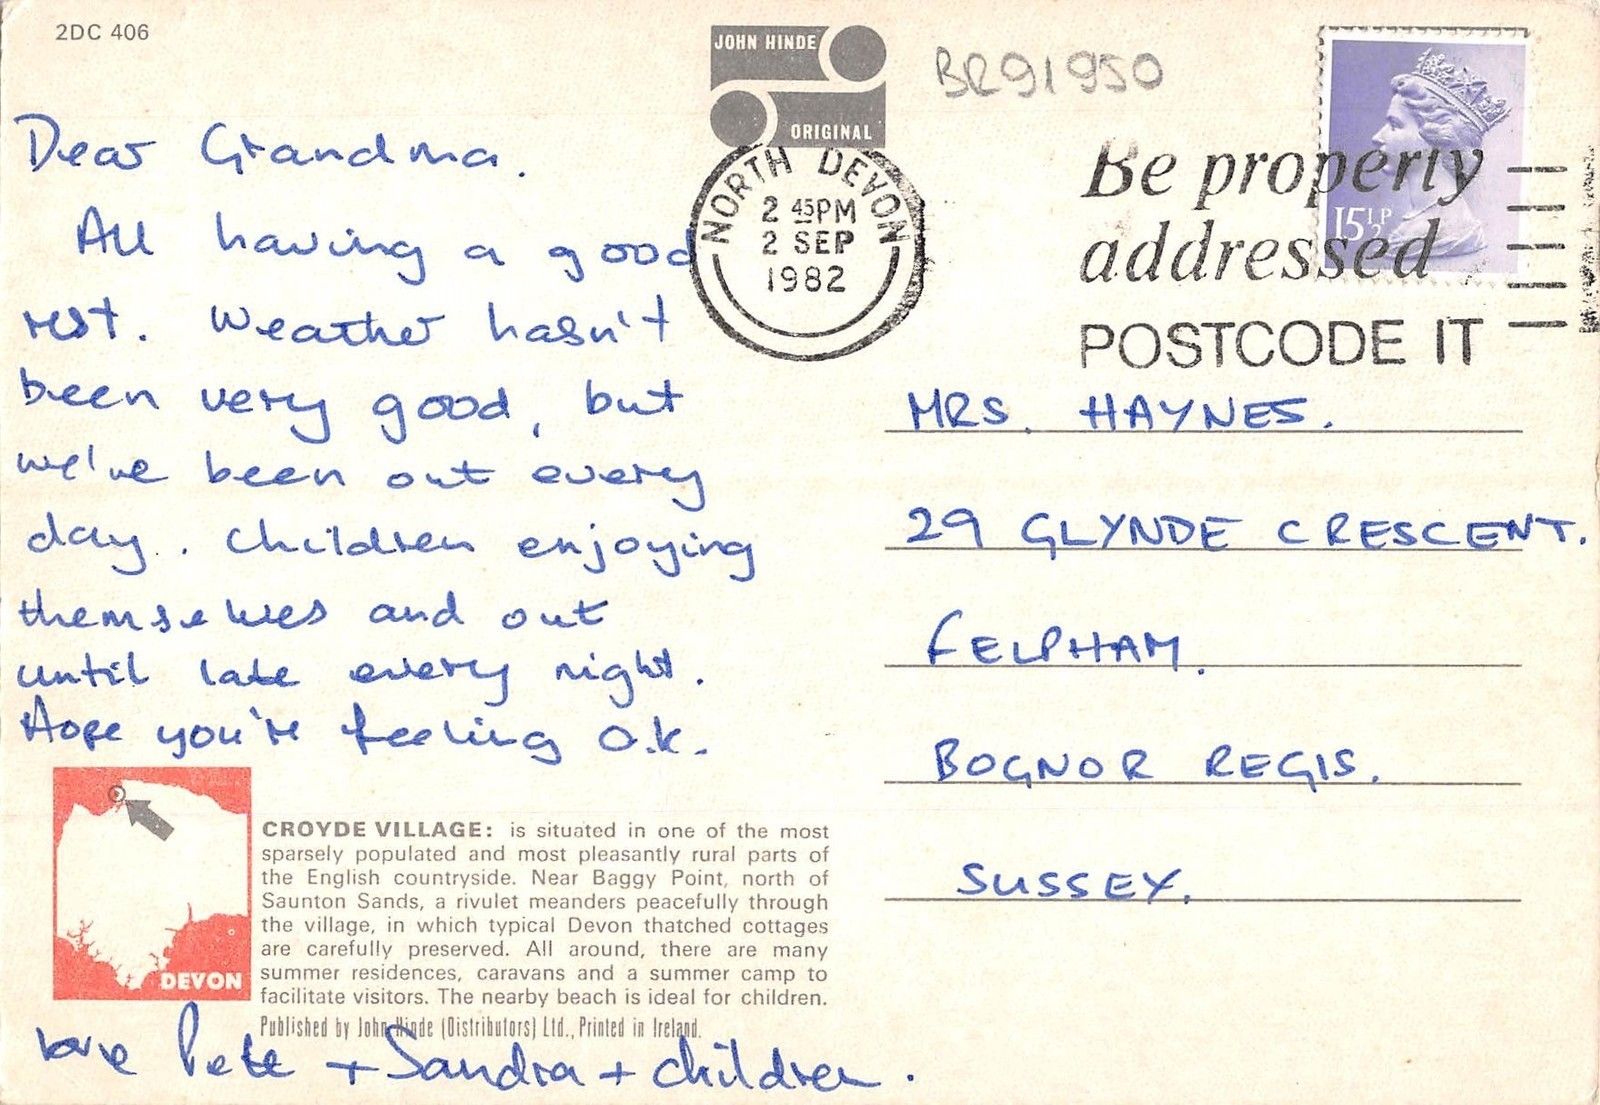 2DC 406
JOHN HINDE
ORIGINAL
BR91950
NORTH DEVON
2 45PM
2 SEP
1982
Be properly
addressed
POSTCODE IT
15½P
Dear Grandma.
All having a good
rest. Weather hasn't
been very good, but
we've been out every
day. Children enjoying
themselves and out
until late every night.
Hope you're feeling O.K.
love Pete + Sandra + children.
MRS. HAYNES.
29 GLYNDE CRESCENT.
FELPHAM.
BOGNOR REGIS.
SUSSEX.
DEVON
CROYDE VILLAGE: is situated in one of the most
sparsely populated and most pleasantly rural parts of
the English countryside. Near Baggy Point, north of
Saunton Sands, a rivulet meanders peacefully through
the village, in which typical Devon thatched cottages
are carefully preserved. All around, there are many
summer residences, caravans and a summer camp to
facilitate visitors. The nearby beach is ideal for children.
Published by John Hinde (Distributors) Ltd., Printed in Ireland.